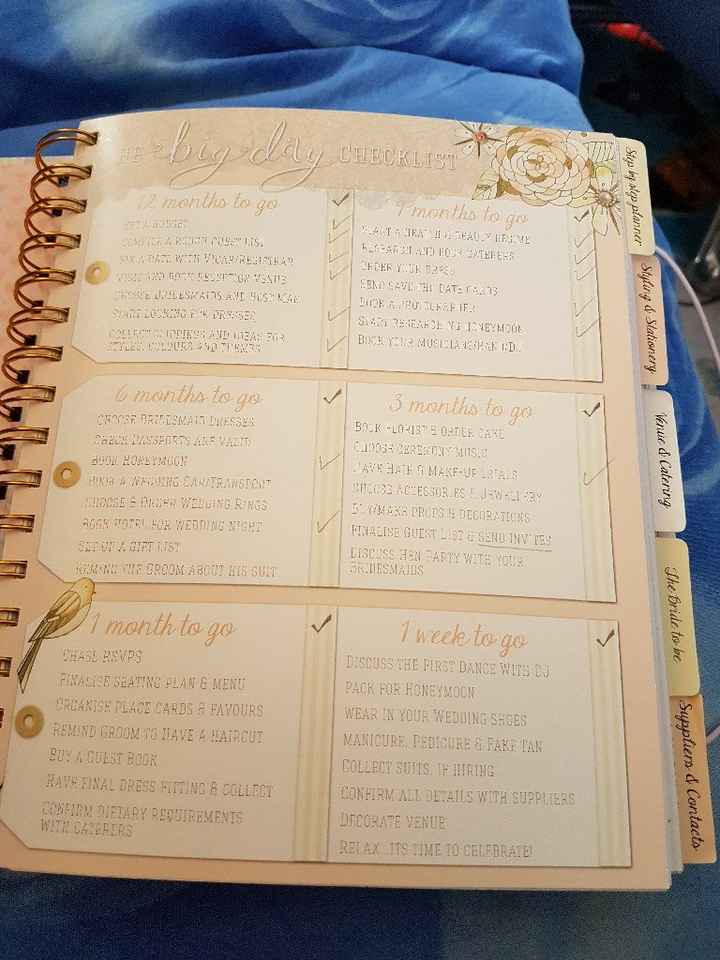 THE big day CHECKLIST
12 months to go
SET A BUDGET
COMPILE A ROUGH GUEST LIST
SET A DATE WITH VICAR/REGISTRAR
VISIT AND BOOK RECEPTION VENUE
CHOOSE BRIDESMAIDS AND BEST MAN
START LOOKING FOR DRESSES
COLLECT CLIPPINGS AND IDEAS FOR
STYLES, COLOURS AND THEMES
9 months to go
START A HEALTH & BEAUTY REGIME
RESEARCH AND BOOK CATERERS
ORDER YOUR DRESS
SEND SAVE THE DATE CARDS
BOOK A PHOTOGRAPHER
START RESEARCHING HONEYMOON
BOOK YOUR MUSICIANS/BAND/DJ
6 months to go
CHOOSE BRIDESMAID DRESSES
CHECK PASSPORTS ARE VALID
BOOK HONEYMOON
BOOK A WEDDING CAR/TRANSPORT
CHOOSE & ORDER WEDDING RINGS
BOOK HOTEL FOR WEDDING NIGHT
SET UP A GIFT LIST
REMIND THE GROOM ABOUT HIS SUIT
3 months to go
BOOK FLORIST & ORDER CAKE
CHOOSE CEREMONY MUSIC
HAVE HAIR & MAKE-UP TRIALS
CHOOSE ACCESSORIES & JEWELLERY
DIY/MAKE PROPS & DECORATIONS
FINALISE GUEST LIST & SEND INVITES
DISCUSS HEN PARTY WITH YOUR
BRIDESMAIDS
1 month to go
CHASE RSVPS
FINALISE SEATING PLAN & MENU
ORGANISE PLACE CARDS & FAVOURS
REMIND GROOM TO HAVE A HAIRCUT
BUY A GUEST BOOK
HAVE FINAL DRESS FITTING & COLLECT
CONFIRM DIETARY REQUIREMENTS
WITH CATERERS
1 week to go
DISCUSS THE FIRST DANCE WITH DJ
PACK FOR HONEYMOON
WEAR IN YOUR WEDDING SHOES
MANICURE, PEDICURE & FAKE TAN
COLLECT SUITS, IF HIRING
CONFIRM ALL DETAILS WITH SUPPLIERS
DECORATE VENUE
RELAX...ITS TIME TO CELEBRATE!
Step by step planner
Styling & Stationery
Venue & Catering
The Bride to be
Suppliers & Contacts